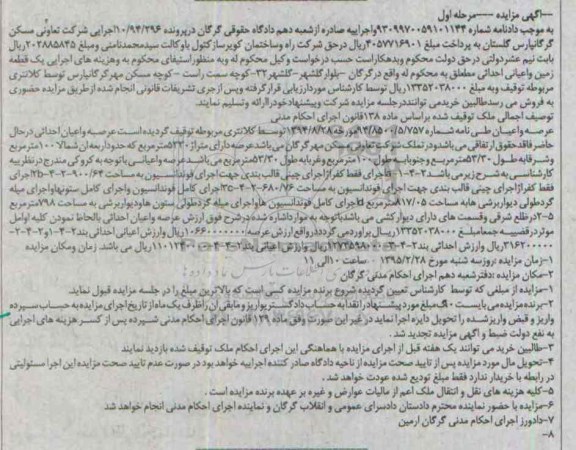 —آگهی مزایده —— مرحله اول
به موجب دادنامه شماره ۹۳۰۹۹۷۰۰۵۹۱۰۱۱۴۴ واجراییه صادره ازشعبه دهم دادگاه حقوقی گرگان درپرونده ۱۰/۹۴/۲۹۶اجرایی شرکت تعاونی مسکن
گرگانپارس گلستان به پرداخت مبلغ ۴۰۵۷۷۱۶۹۰۱ریال درحق شرکت راه وساختمان کویرسازکتول باوکالت سیدمحمدنامنی ومبلغ ۲۰۲۸۸۵۸۴۵ریال
بابت نیم عشردولتی درحق دولت محکوم وبدهکاراست حسب درخواست وکیل محکوم له وبه منظوراستیفای محکوم به وهزینه های اجرایی یک قطعه
زمین واعیانی احداثی متعلق به محکوم له واقع درگرگان –بلوارگلشهر–گلشهر۳۲–کوچه سمت راست – کوچه مسکن مهرگرگانپارس توسط کلانتری
مربوطه توقیف وبه مبلغ ۱۳۳۵۲۰۳۸۰۰۰ریال توسط کارشناس موردارزیابی قرارگرفته وپس از جری تشریفات قانونی انجام شده ازطریق مزایده حضوری
به فروش می رسدطالبین خریدمی تواننددرجلسه مزایده شرکت وپیشنهادخودراارائه وتسلیم نمایند.
توصیف اجمالی ملک توقیف شده براساس ماده ۱۳۸قانون اجرای احکام مدنی
عرصه واعیان طی نامه شماره ۹۴/۸۵۰۰/۵/۷۵۷مورخه ۱۳۹۴/۸/۲۸توسط کلانتری مربوطه توقیف گردیده است عرصه واعیان احداثی درحال
حاضرفاقدحقوق ارتفاقی می باشدودرتملک شرکت تعاونی مسکن مهرگرگان می باشدعرصه دارای متراژ ۵۳۳۰مترمربع که حدوداربعه ان شمالا۱۰۰مترمربع
وشرقابه طول ۵۳/۳۰مترمربع وجنوبابه طول ۱۰۰مترمربع وغربابه طول ۵۳/۳۰مترمربع می باشدعرصه واعیانی باتوجه به کروکی مندرج درنظریه
کارشناسی به شرح زیرمی باشد
فقط کفراژاجرای چینی قالب بندی جهت اجرای فوندانسیون به مساحت
گردطولی دیواربرشی هابه مساحت ۸۱۷/۰۵مترمربع
۵–۲درظلع شرقی وقسمت های دارای دیوارکشی می باشدباتوجه به مواردشاره شده درشرح فوق ارزش عرصه واعیان احداثی بالحاظ نمودن کلیه اوامل
موثردرقضییه جمعامبلغ ۱۳۳۵۲۰۳۸۰۰۰ریال براوردمی گردددرواقع ارزش عرصه ۱۰۶۶۰۰۰۰۰۰۰
۱–زمان مزایده :روزسه شنبه مورخ ۱۳۹۵/۲/۲۸ ساعت ۱۰الی ۱۱
۲–مکان مزایده :دفترشعبه دهم اجرای احکام مدنی گرگان
۱–مزایده از مبلغی که توسط کارشناس تعیین گردیده شروع برنده مزایده کسی است که بالاترین مبلغ را در جلسه مزایده قبول نماید.
۲–برنده مزایده می بایست ۱۰% مبلغ مورد پیشنهاد را نقدا به حساب دادگستری واریز و مابقی آن را ظرف یک ماه از تاریخ اجرای مزایده به حساب سپرده
واریز و قبض واریز شده را تحویل دایره اجرا نماید در غیر این صورت وفق ماده ۱۲۹ قانون اجرای احکام مدنی سپرده پس از کسر هزینه های اجرایی
به نفع دولت ضبط و آگهی مزایده تجدید شد .
۳–طالبین خرید می توانند یک هفته قبل از اجرای مزایده با هماهنگی این اجرای احکام ملک توقیف شده بازدید نمایند
۴–تحویل مال مورد مزایده پس از تایید صحت مزایده از ناحیه دادگاه صادر کننده اجراییه خواهد بود در صورت عدم تایید صحت مزایده این اجرا مسئولیتی
در رابطه با خریدار ندارد فقط مبلغ تودیع شده عودت خواهد شد .
۵–کلیه هزینه های نقل و انتقال ملک اعم از مالیات عوارض و غیره بر عهده برنده مزایده است .
۶–مزایده با حضور نماینده محترم دادستان دادسرای عمومی و انقلاب گرگان و نماینده اجرای احکام مدنی انجام خواهد شد
۷–دادورز اجرای احکام مدنی گرگان ارمین
۸–